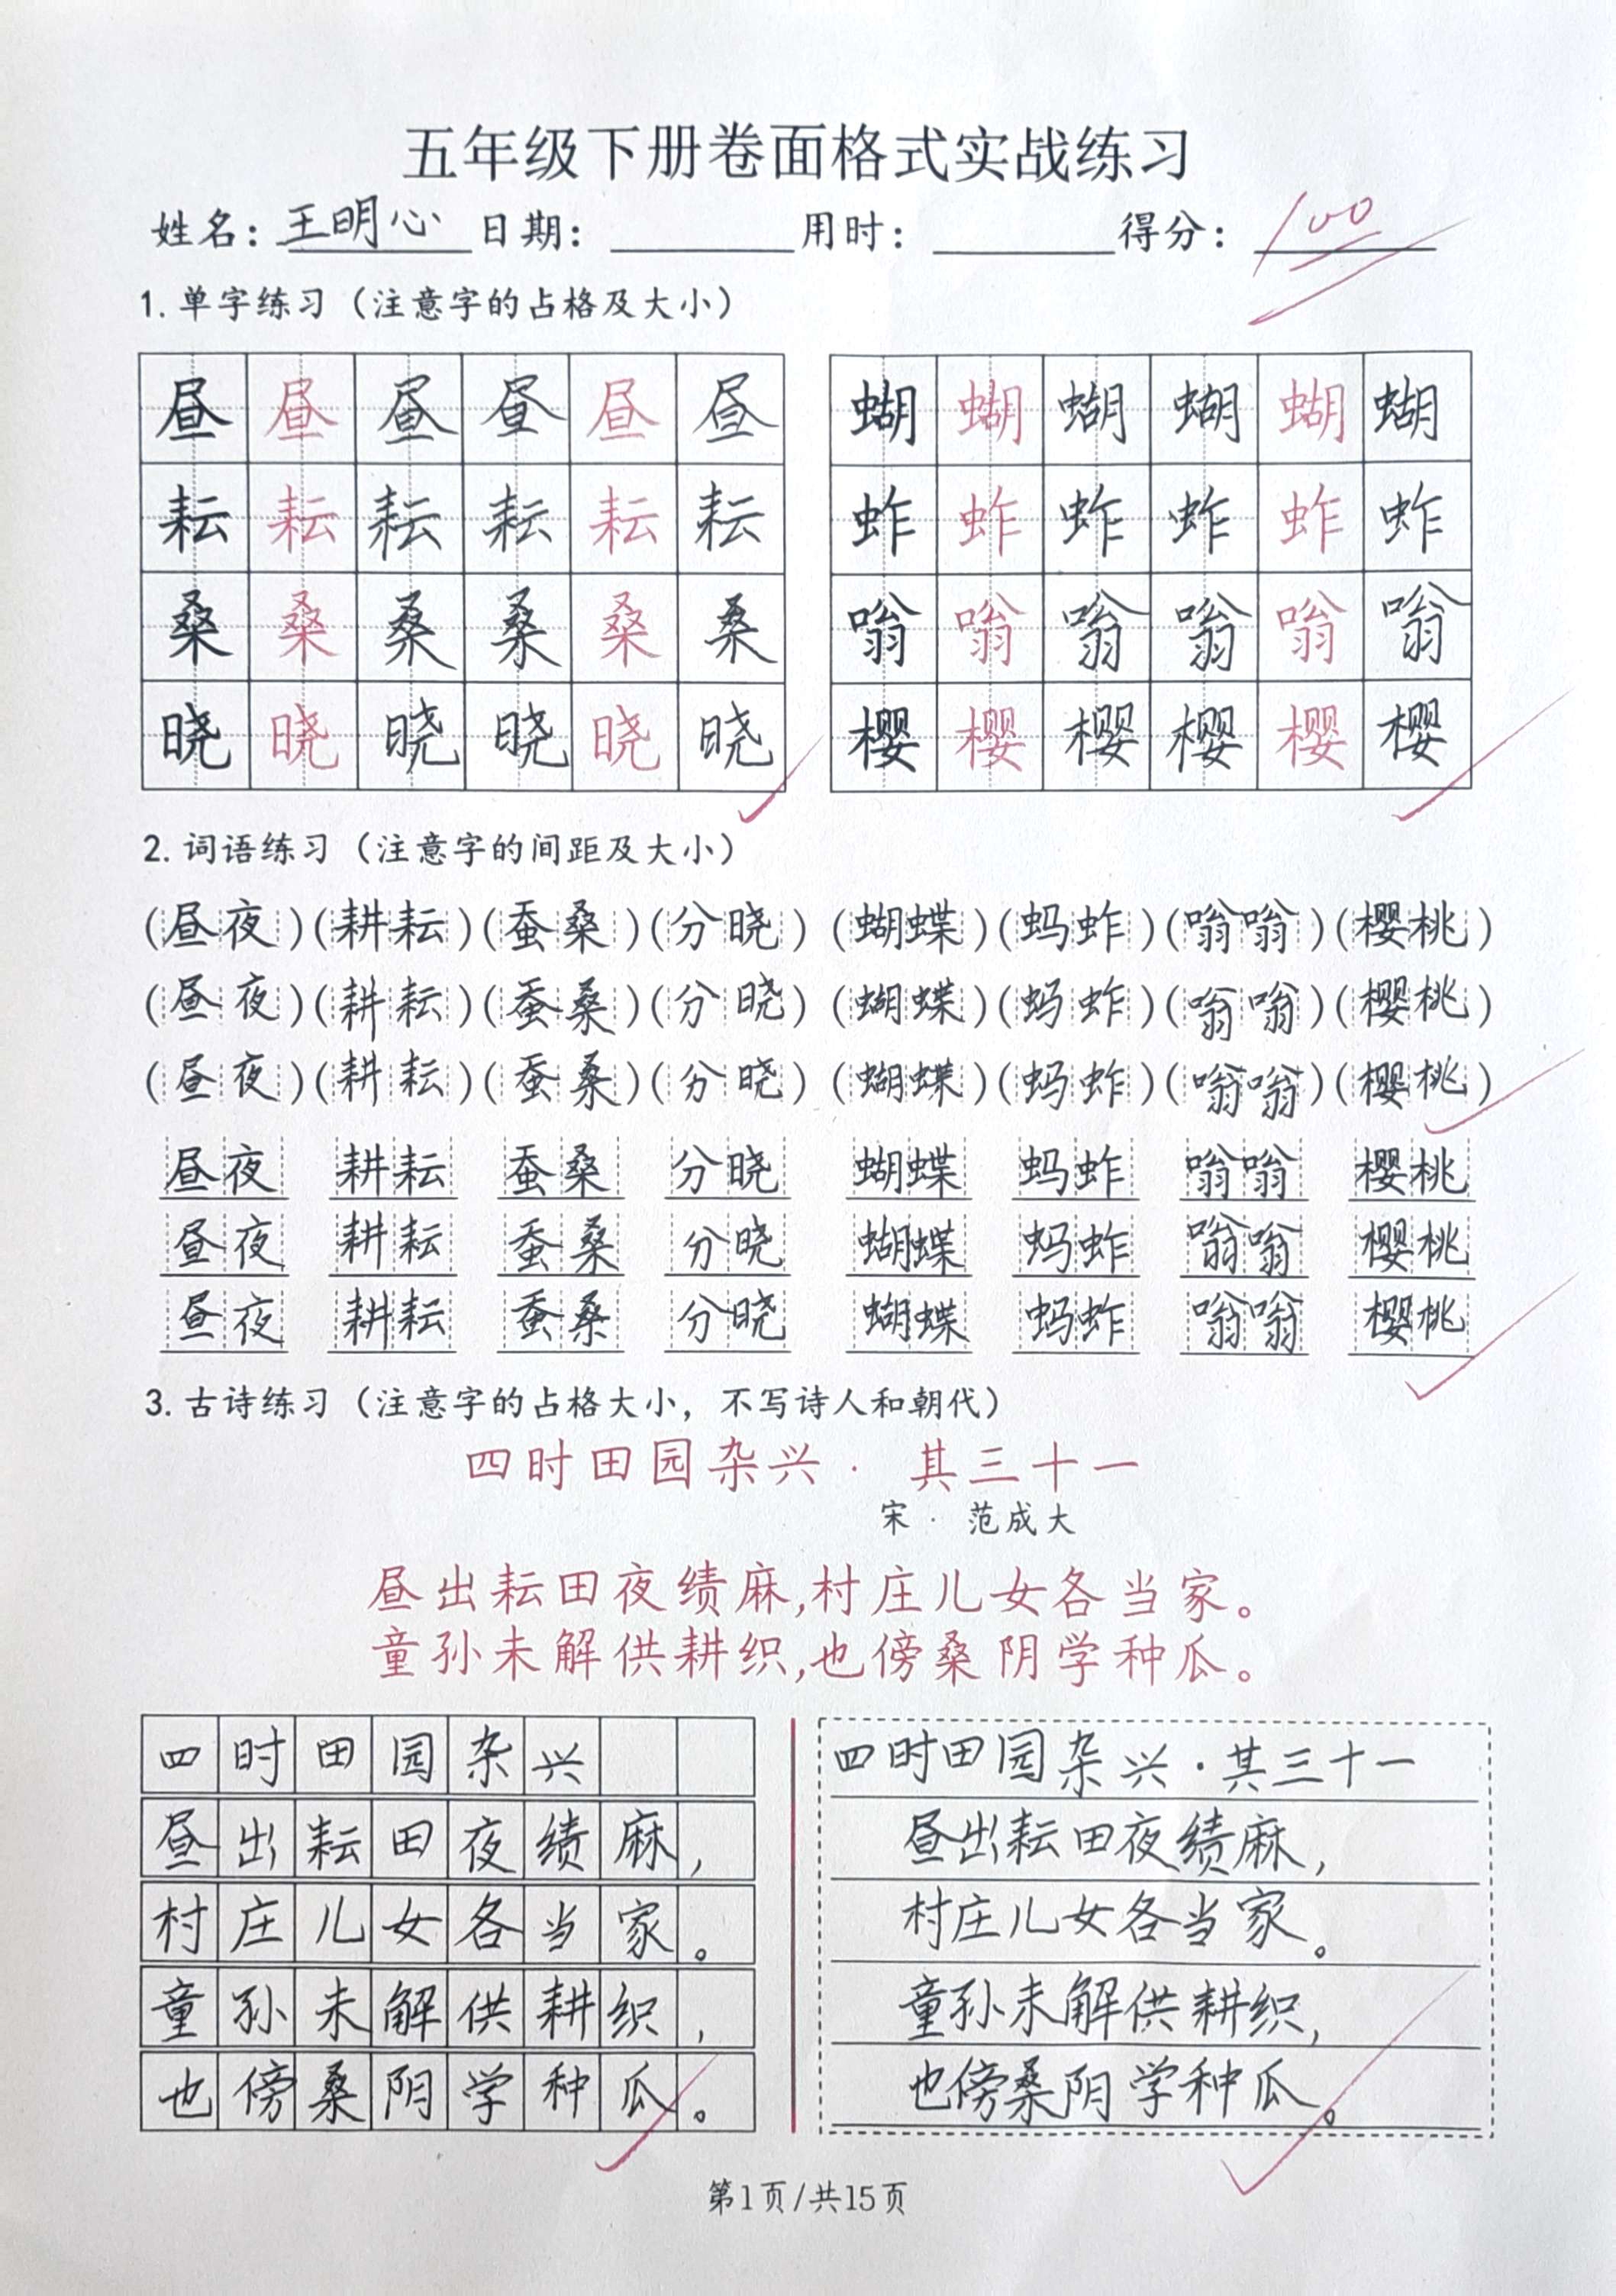 五年级下册卷面格式实战练习
姓名：王明心 日期： 用时： 得分：100
1. 单字练习（注意字的占格及大小）
昼 昼 昼 昼 昼 昼 蝴 蝴 蝴 蝴 蝴 蝴
耘 耘 耘 耘 耘 耘 蚱 蚱 蚱 蚱 蚱 蚱
桑 桑 桑 桑 桑 桑 嗡 嗡 嗡 嗡 嗡 嗡
晓 晓 晓 晓 晓 晓 樱 樱 樱 樱 樱 樱
2. 词语练习（注意字的间距及大小）
(昼夜)(耕耘)(蚕桑)(分晓) (蝴蝶)(蚂蚱)(嗡嗡)(樱桃)
(昼夜)(耕耘)(蚕桑)(分晓) (蝴蝶)(蚂蚱)(嗡嗡)(樱桃)
(昼夜)(耕耘)(蚕桑)(分晓) (蝴蝶)(蚂蚱)(嗡嗡)(樱桃)
昼夜 耕耘 蚕桑 分晓 蝴蝶 蚂蚱 嗡嗡 樱桃
昼夜 耕耘 蚕桑 分晓 蝴蝶 蚂蚱 嗡嗡 樱桃
昼夜 耕耘 蚕桑 分晓 蝴蝶 蚂蚱 嗡嗡 樱桃
3. 古诗练习（注意字的占格大小，不写诗人和朝代）
四时田园杂兴· 其三十一
宋· 范成大
昼出耘田夜绩麻,村庄儿女各当家。
童孙未解供耕织,也傍桑阴学种瓜。
四时田园杂兴
昼出耘田夜绩麻，
村庄儿女各当家。
童孙未解供耕织，
也傍桑阴学种瓜。
四时田园杂兴·其三十一
昼出耘田夜绩麻，
村庄儿女各当家。
童孙未解供耕织，
也傍桑阴学种瓜。
第1页/共15页